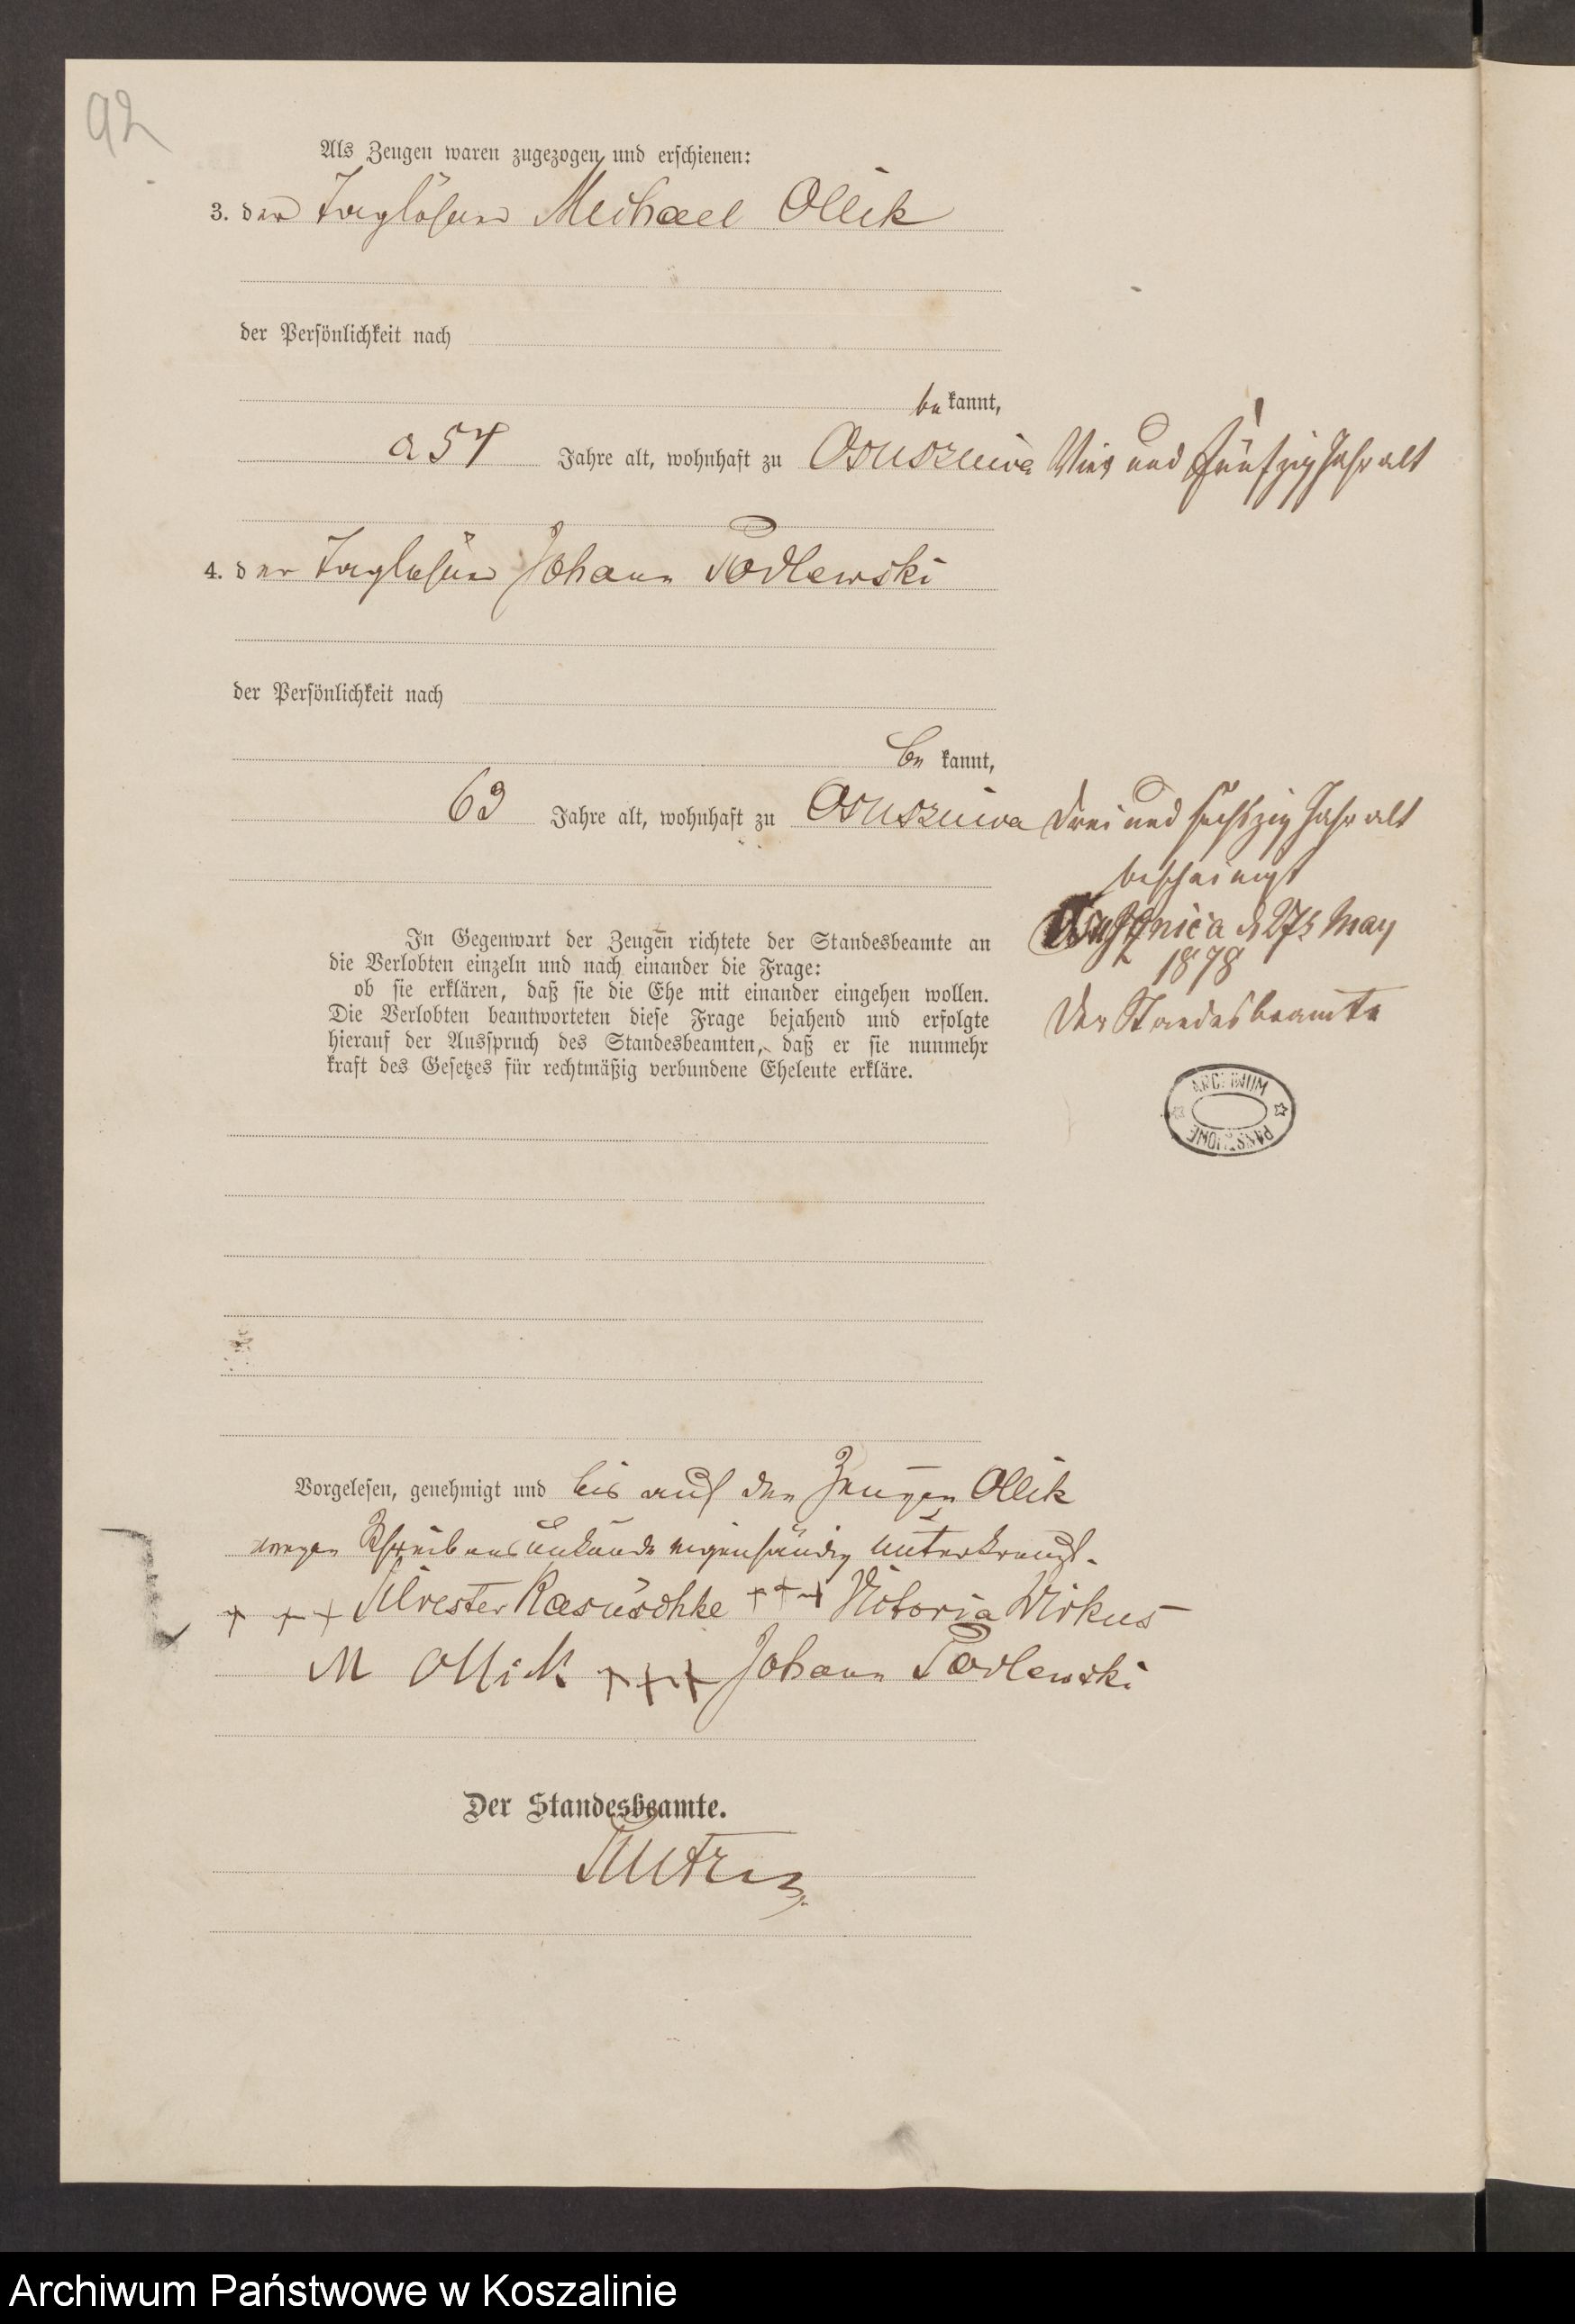 92
Als Zeugen waren zugezogen und erschienen:
3. der Taglöhner Michael Ollik
der Persönlichkeit nach
be kannt,
a 54 Jahre alt, wohnhaft zu Osuszniza Vier und fünfzig Jahr alt
4. der Taglöhner Johann Podlewski
der Persönlichkeit nach
be kannt,
63 Jahre alt, wohnhaft zu Osuszniza Drei und sechszig Jahr alt
bescheinigt
d 27t May
1878
Der Standesbeamte
In Gegenwart der Zeugen richtete der Standesbeamte an
die Verlobten einzeln und nach einander die Frage:
ob sie erklären, daß sie die Ehe mit einander eingehen wollen.
Die Verlobten beantworteten diese Frage bejahend und erfolgte
hierauf der Ausspruch des Standesbeamten, daß er sie nunmehr
kraft des Gesetzes für rechtmäßig verbundene Eheleute erkläre.
ARCHIWUM PAŃSTWOWE
Vorgelesen, genehmigt und bis auf den Zeugen Ollik
wegen Schreibensunkunde eigenhändig unterkreuzt.
+ + + Silvester Kasuschke + + + Victoria Wirkus
M Ollik + + + Johann Podlewski
Der Standesbeamte.
Archiwum Państwowe w Koszalinie